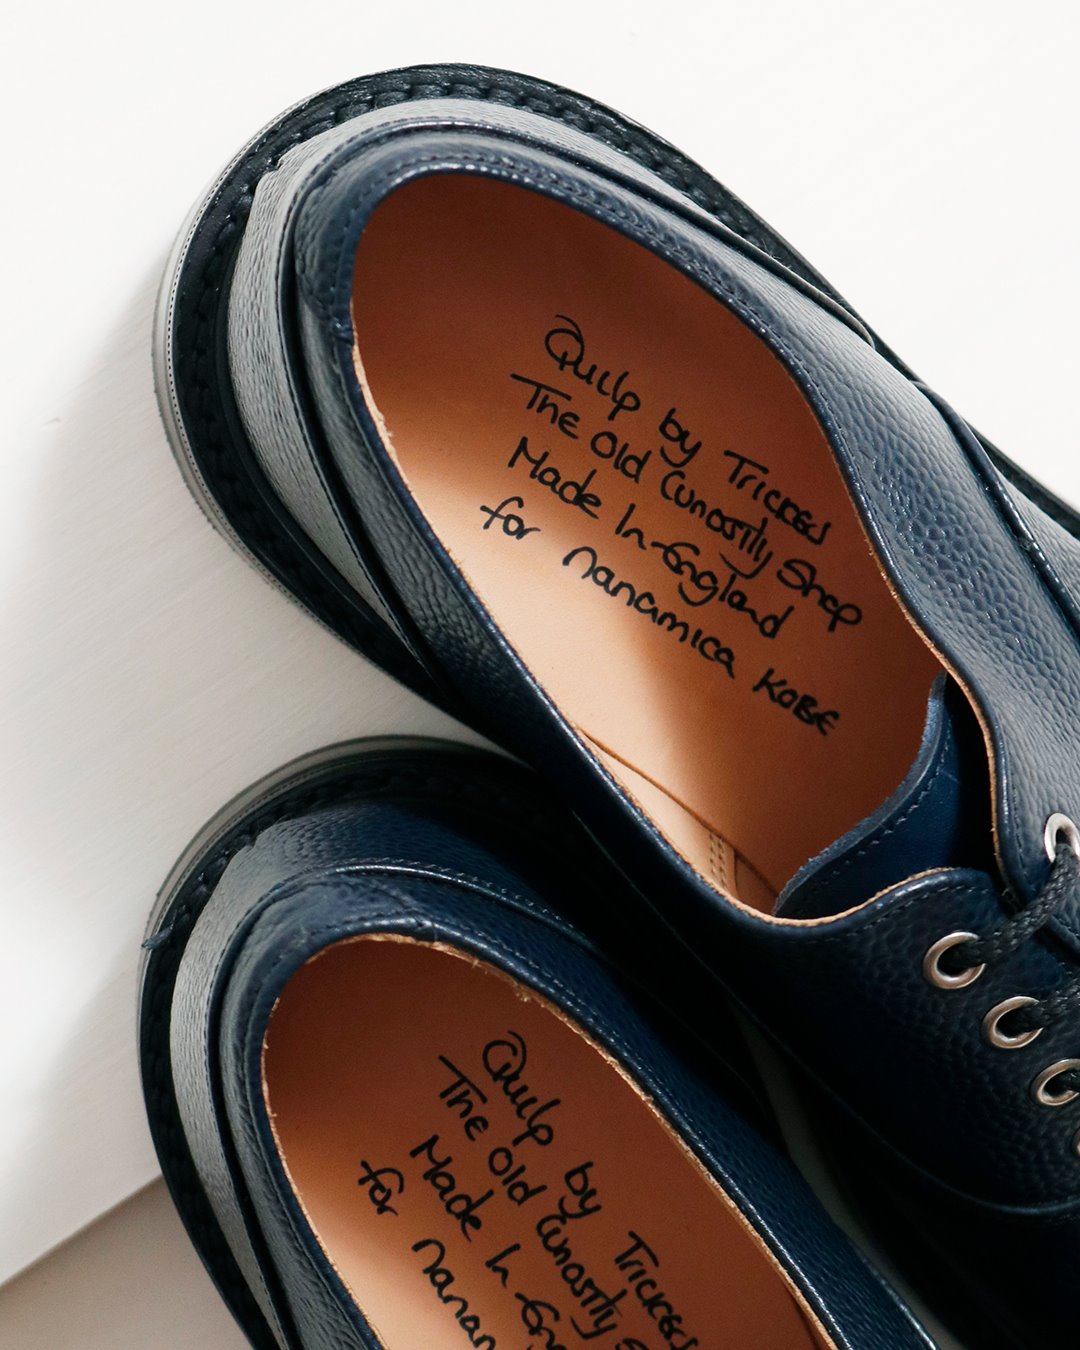 Quilp by Tricker's
The Old Curiosity Shop
Made In England
for nanamica KOBE
Quilp by Tricker's
The Old Curiosity S
Made In Eng
for nanam